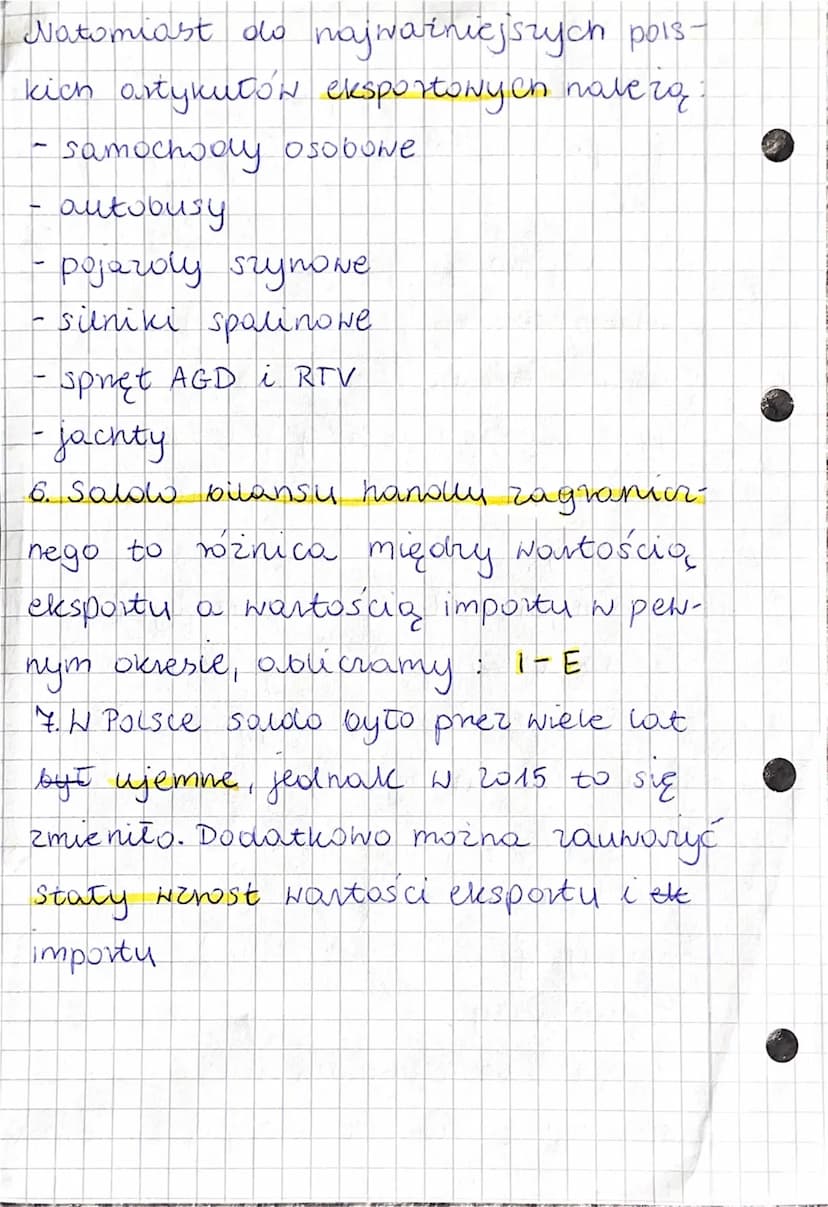 Natomiast do najważniejszych pols-
kich artykułów eksportowych należą:
- samochody osobowe
- autobusy
- pojazdy szynowe
- silniki spalinowe
- sprzęt AGD i RTV
- jachty
6. Saldo bilansu handlu zagranicz-
nego to różnica między wartością
eksportu a wartością importu w pew-
nym okresie, obliczamy: I - E
7. W Polsce saldo było przez wiele lat
był ujemne, jednak w 2015 to się
zmieniło. Dodatkowo można zauważyć
stały wzrost wartości eksportu i ek
importu